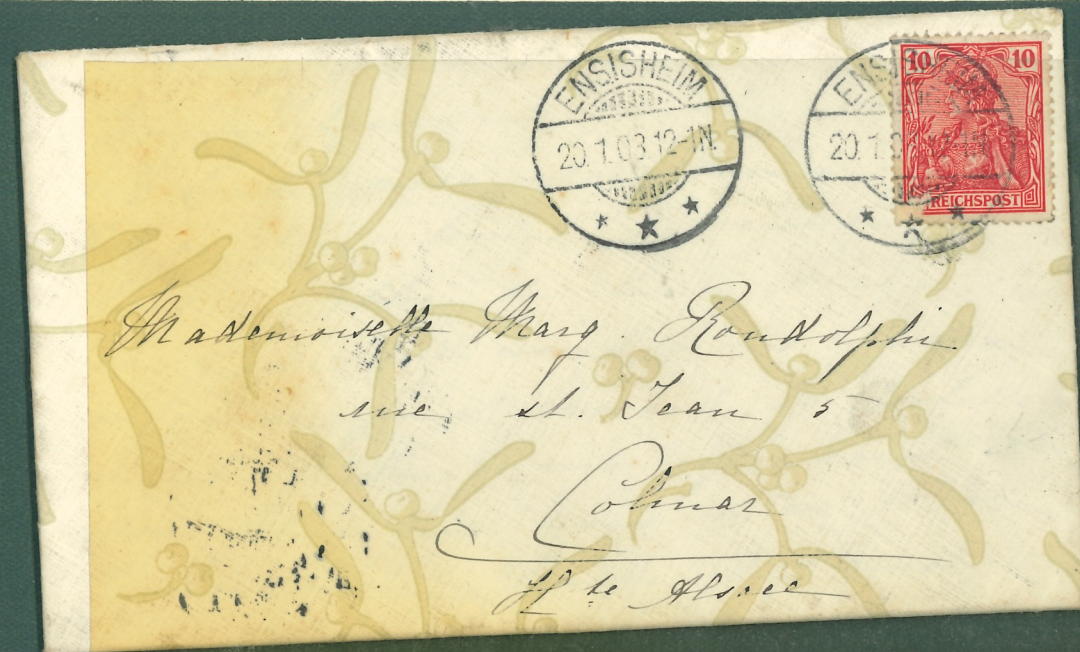 ENSISHEIM
20.1.03.12-1N.
ENS
20.1.
10 10
REICHSPOST
Mademoiselle Marg. Rondolphi
rue st. Jean 5
Colmar
Hte Alsace